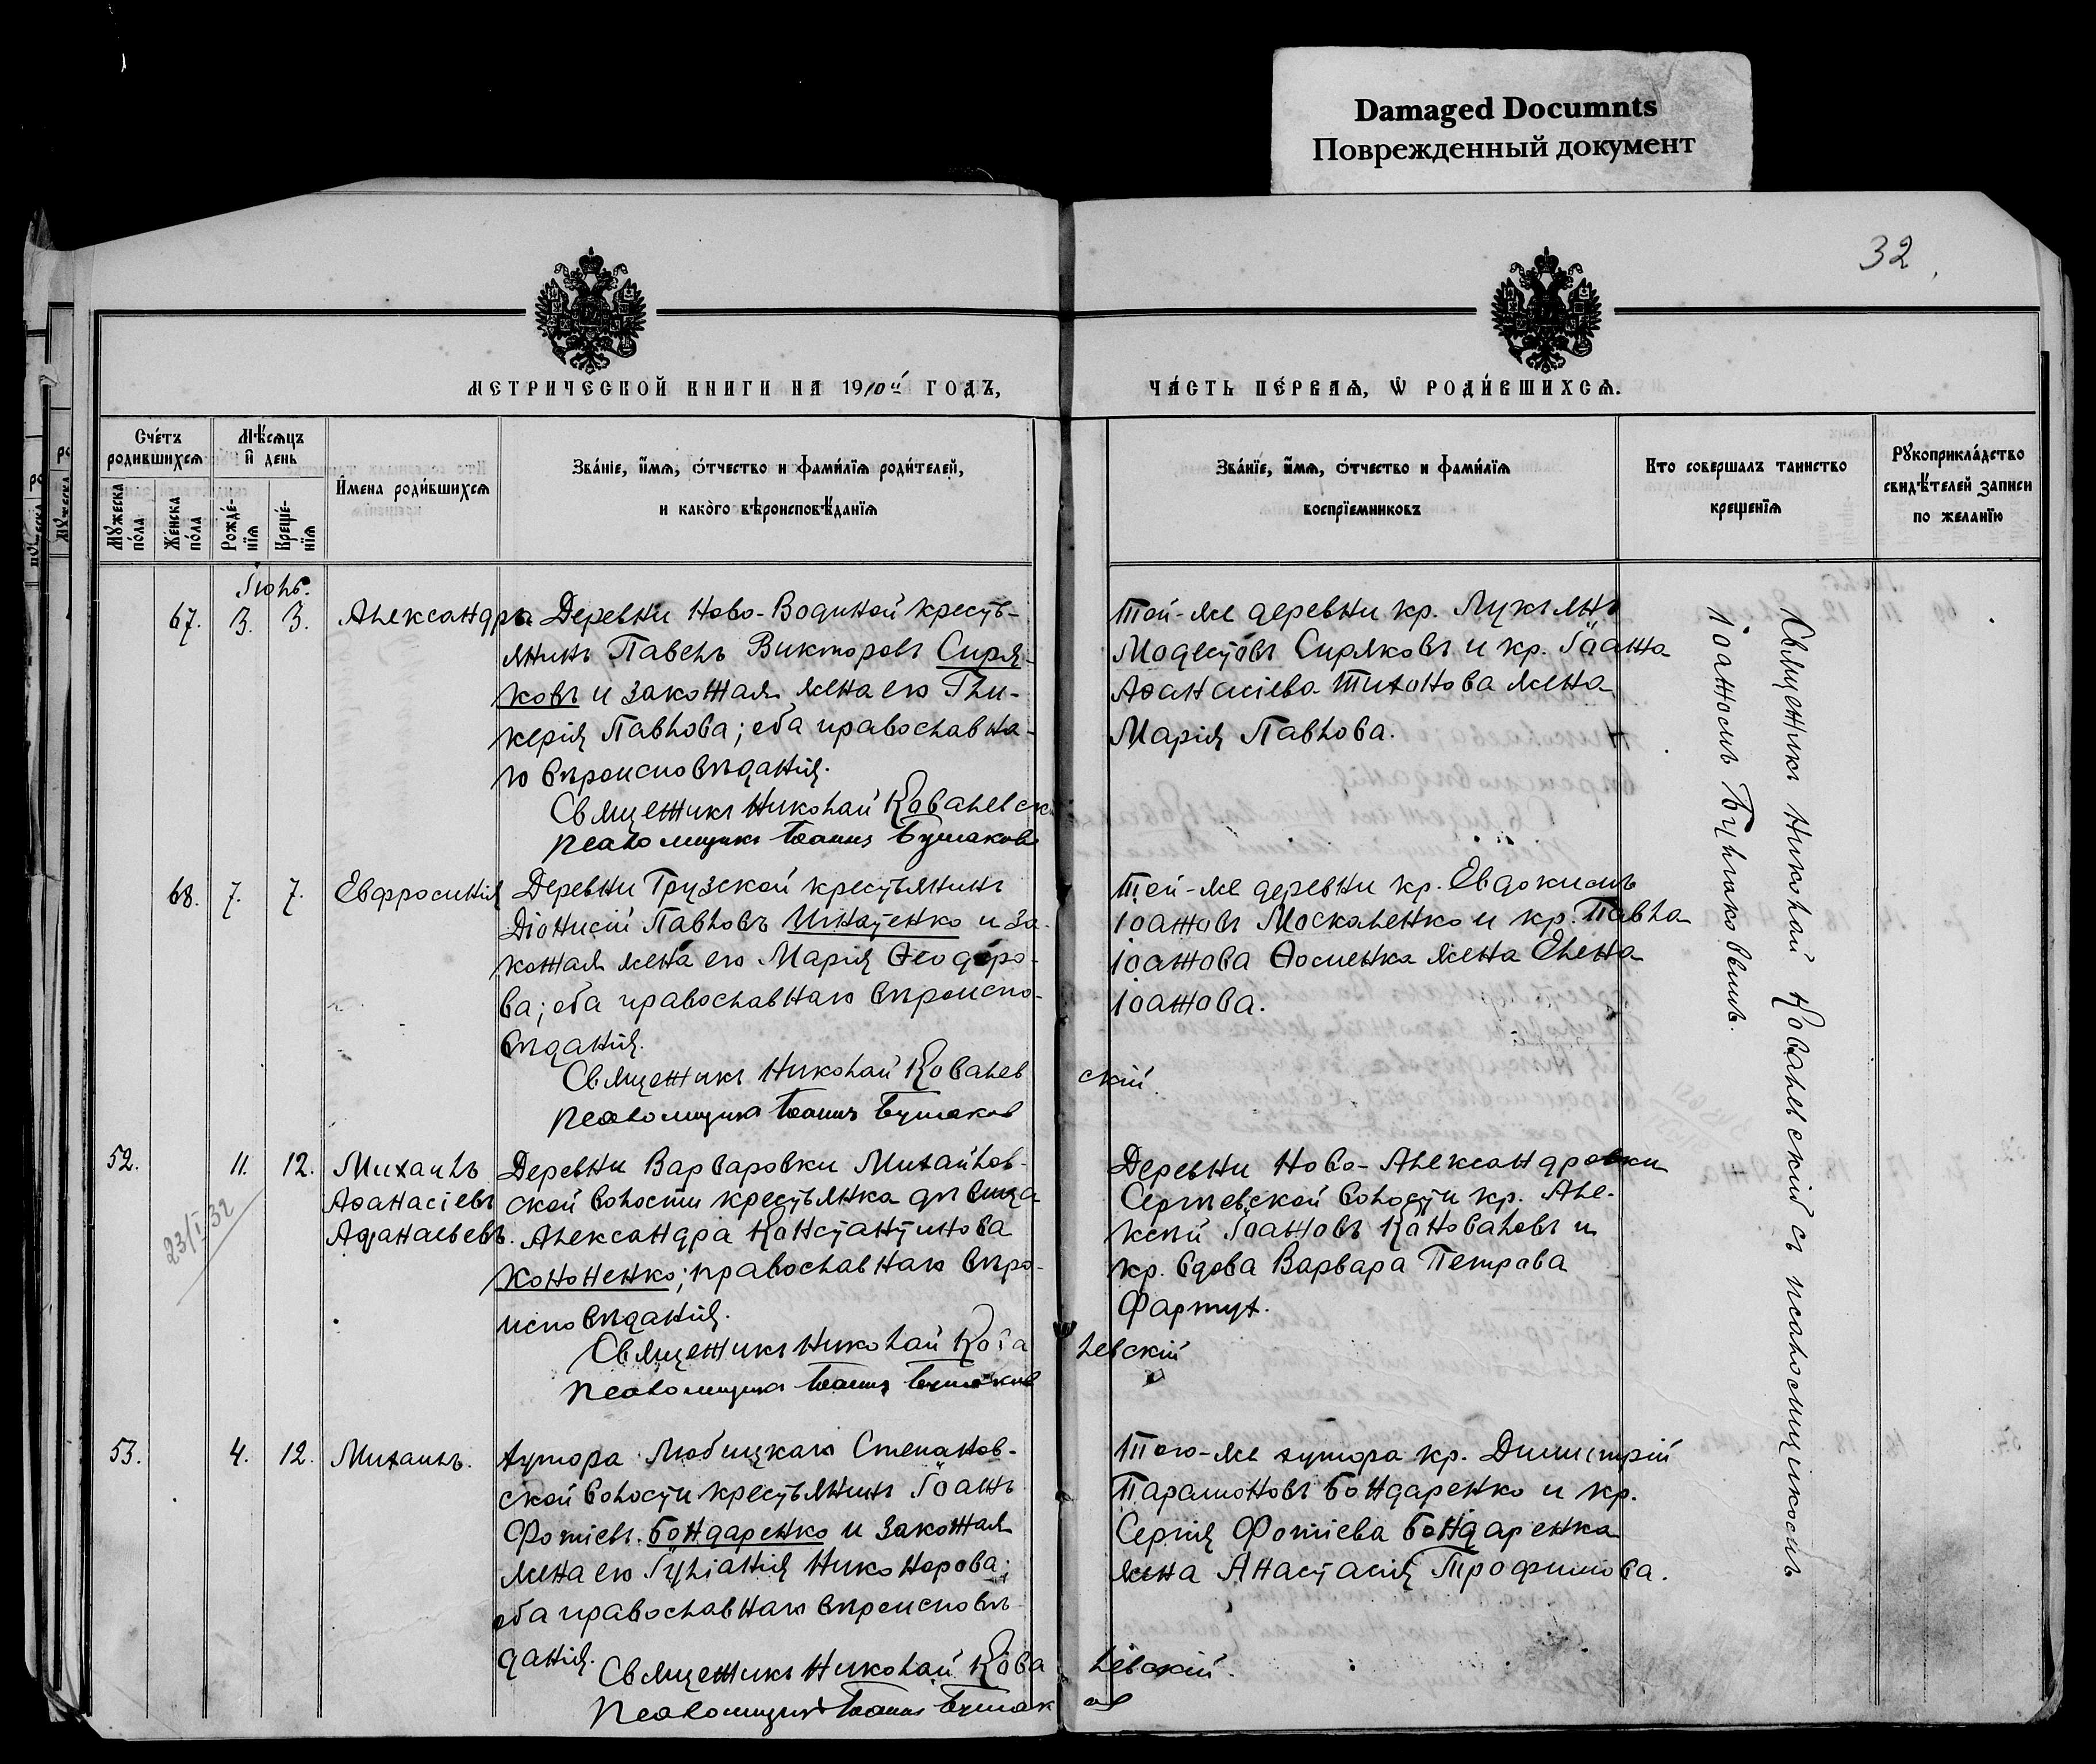 Damaged Documnts
Поврежденный документ
32
МЕТРИЧЕСКОЙ КНИГИ НА 1910й ГОДЪ,
ЧА́СТЬ ПЕ́РВАЯ, Ѡ РОДИ́ВШИХСЯ.
Сче́тъ родившихся
Мѣ́сяцъ и день
Мꙋжеска по́ла
Же́нска по́ла
Рожде́нїя
Креще́нїя
И́мена роди́вшихся
Зва́нїе, и́мя, ѻ́тчество и фами́лїя роди́телей,
и како́го вѣроисповѣ́данїя
Зва́нїе, и́мя, ѻ́тчество и фами́лїя
воспрїемниковъ
Кто совершалъ таинство
крещенїя
Рꙋкоприкла́дство
свидѣ́телей записи
по желанїю
Іюнь.
67. 3. 3. Александра
Деревни Ново-Водиной кресть-
янинъ Павелъ Викторовъ Сиря-
ковъ и законная жена его Гли-
керія Павлова; оба православна-
го вѣроисповѣданія.
Священникъ Николай Ковалевск
Псаломщикъ Іоаннъ Бушаков
Той-же деревни кр. Лукіянъ
Модестовъ Сиряковъ и кр. Іоанна
Аѳанасіева Тихонова жена
Марія Павлова.
68. 7. 7. Евфросинія
Деревни Грузской крестьянинъ
Діонисій Павловъ Игнатенко и за-
конная жена его Марія Ѳеодоро-
ва; оба православнаго вѣроиспо-
вѣданія.
Священникъ Николай Ковалевскій
Псаломщикъ Іоаннъ Бушаков
Той-же деревни кр. Евдокимъ
Іоанновъ Москаленко и кр. Павла
Іоаннова Ѳоменка жена Елена
Іоаннова.
52. 11. 12. Михаилъ
Аѳанасіевъ
Афанасьевъ.
23/I 32
Деревни Варваровки Михайлов-
ской волости крестьянка дѣвица
Александра Константинова
Кононенко; православнаго вѣро-
исповѣданія.
Священникъ Николай Ковалевскій
Псаломщикъ Іоаннъ Бушаков
Деревни Ново-Александровки
Сергѣевской волости кр. Але-
ксѣй Іоанновъ Коноваловъ и
кр. вдова Варвара Петрова
Фартух.
53. 4. 12. Михаилъ.
Хутора Любицкаго Степанов-
ской волости крестьянинъ Іоаннъ
Фотіевъ Бондаренко и законная
жена его Іуліанія Никонорова;
оба православнаго вѣроисповѣ-
данія.
Священникъ Николай Ковалевскій.
Псаломщикъ Іоаннъ Бушаков
Того-же хутора кр. Димитрій
Парамоновъ Бондаренко и кр.
Сергія Фотіева Бондаренка
жена Анастасія Трофимова.
Священникъ Николай Ковалевскій съ псаломщикомъ
Іоанномъ